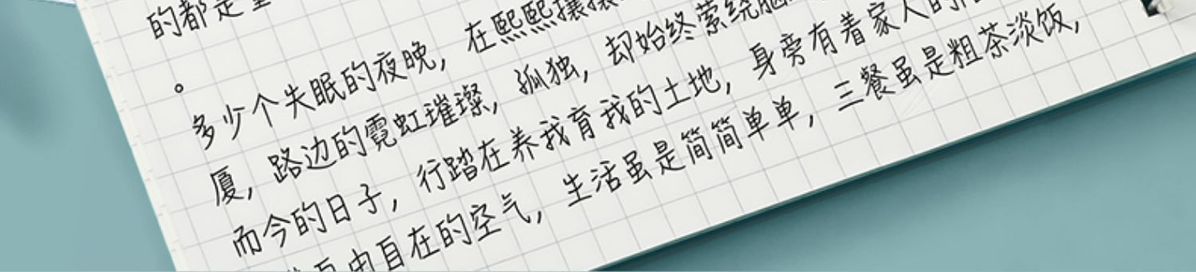 的都是
。
多少个失眠的夜晚，在熙熙攘攘
厦，路边的霓虹璀璨，孤独，却始终萦绕脑
而今的日子，行踏在养我育我的土地，身旁有着家人的陪
自由自在的空气，生活虽是简简单单，三餐虽是粗茶淡饭，